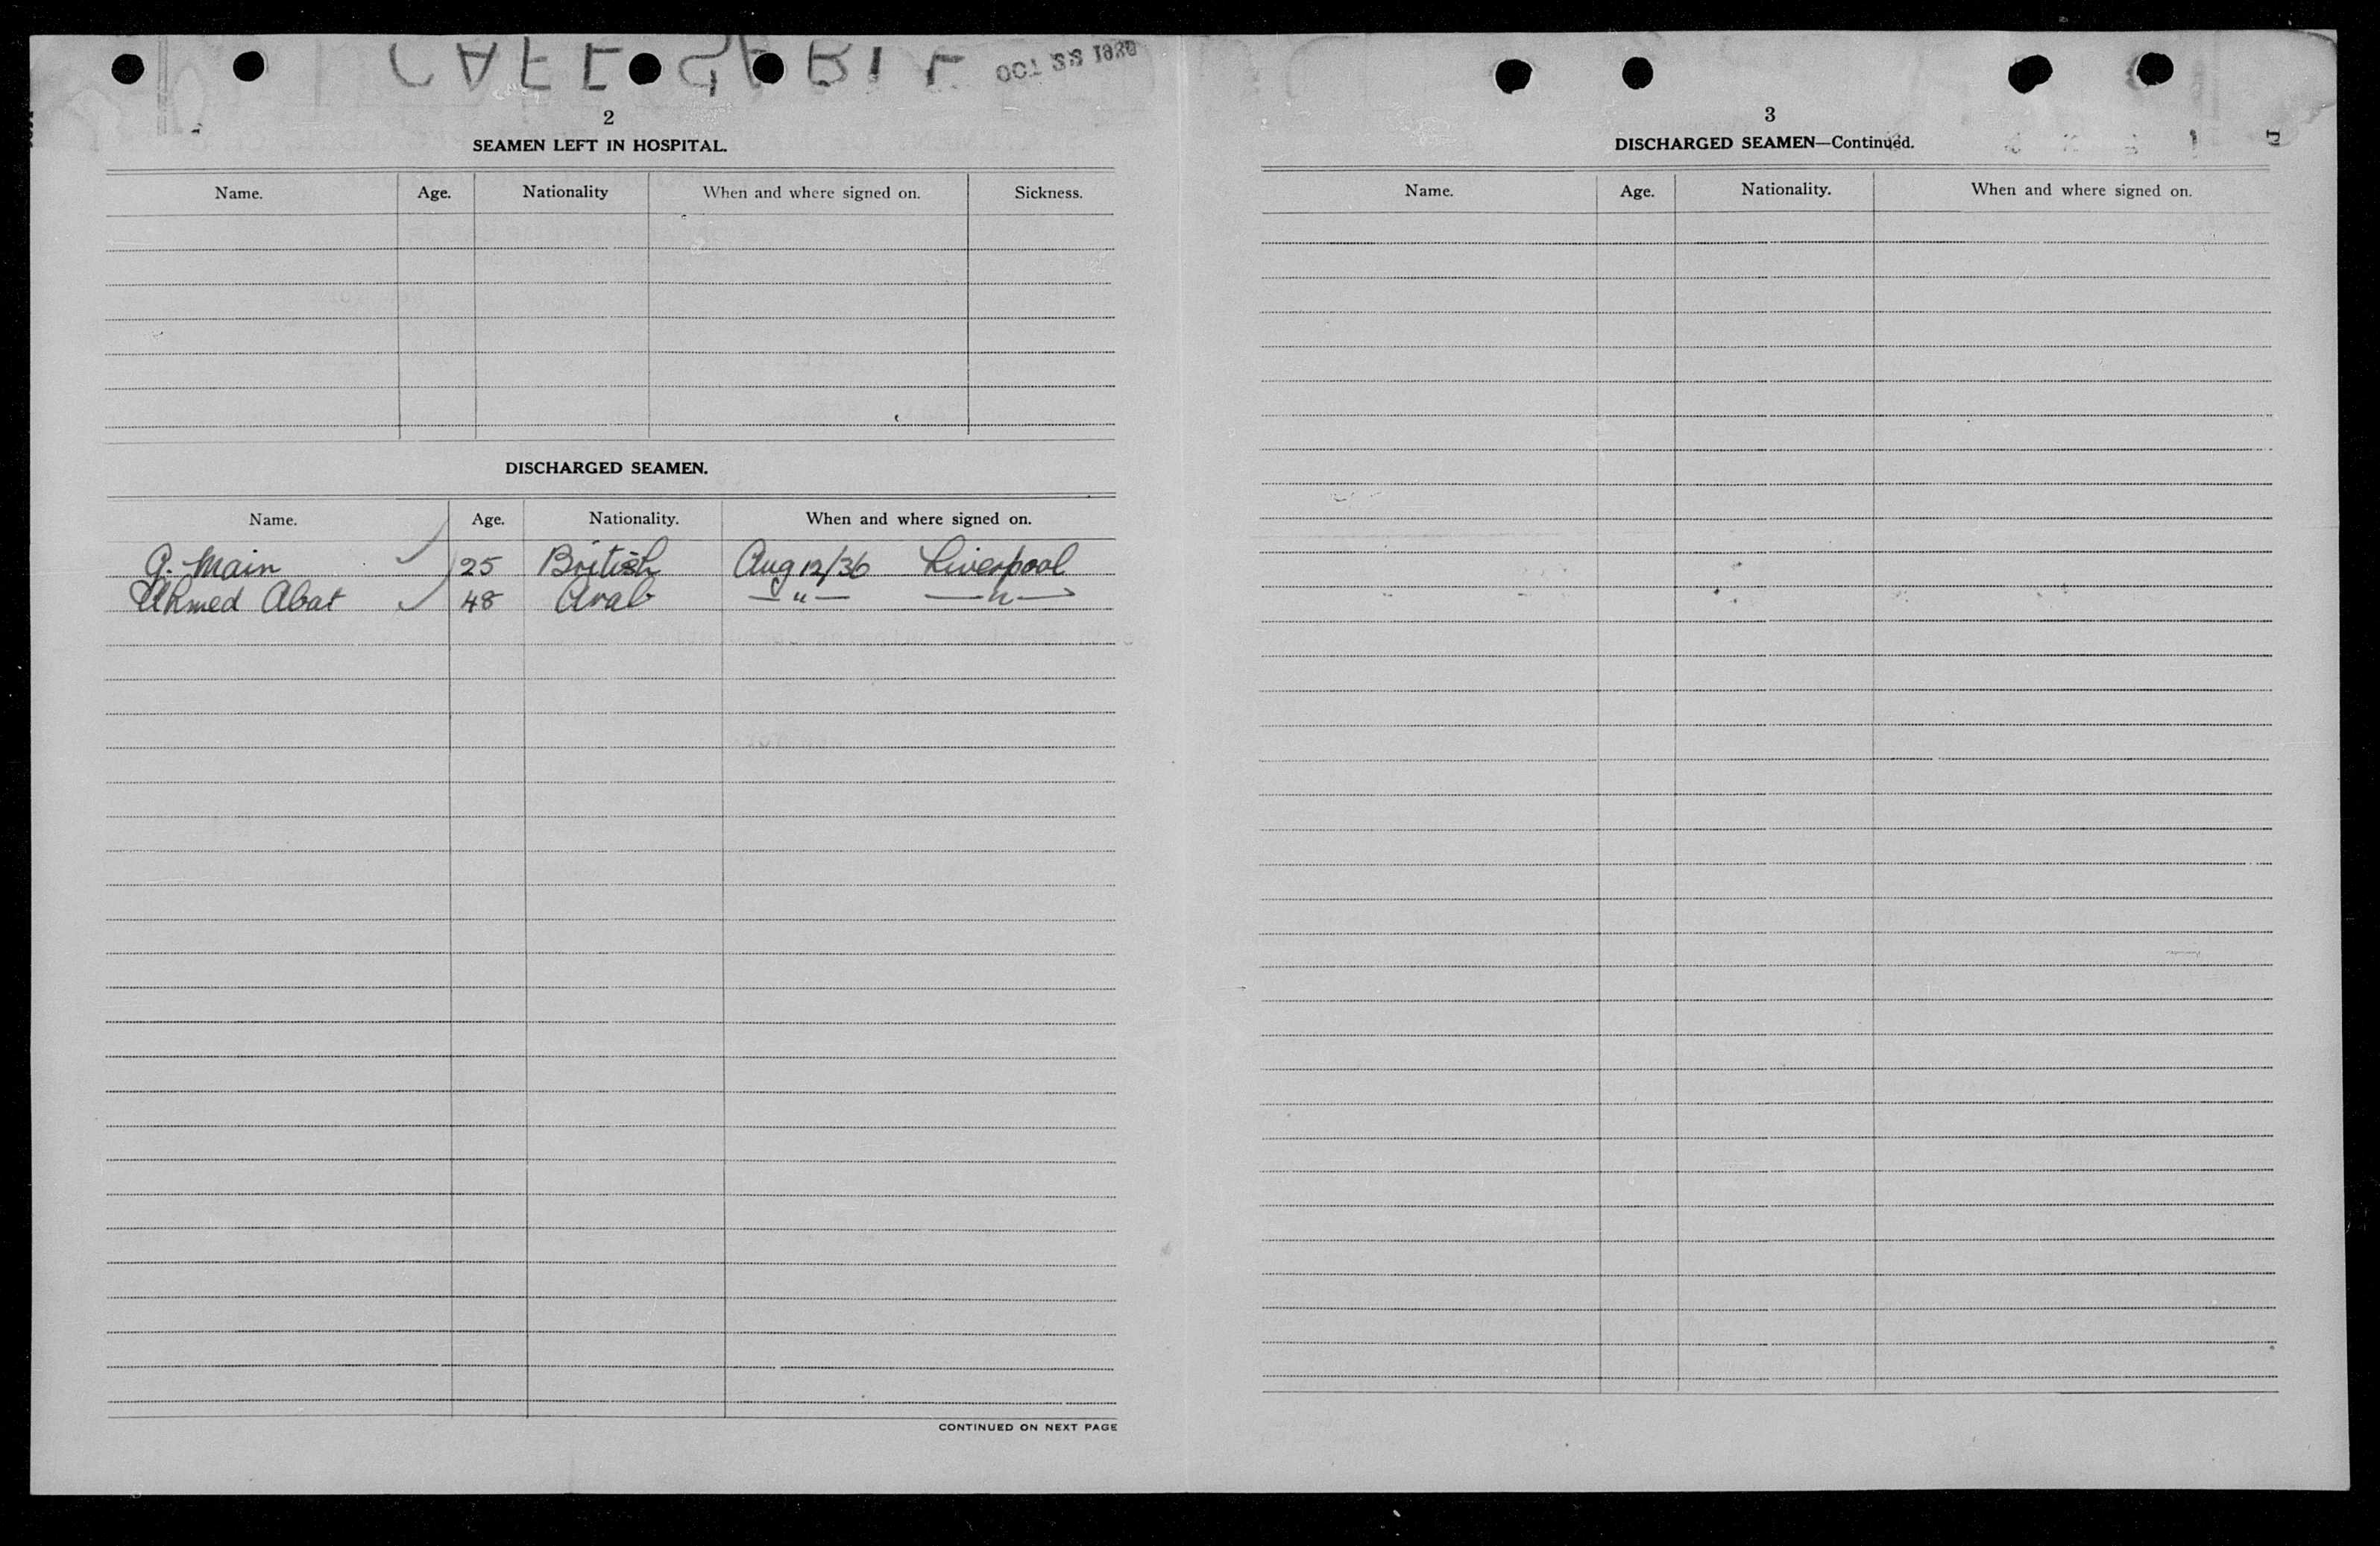 2
SEAMEN LEFT IN HOSPITAL.
Name. Age. Nationality When and where signed on. Sickness.
DISCHARGED SEAMEN.
Name. Age. Nationality. When and where signed on.
G. Main 25 British Aug 12/36 Liverpool
Ahmed Abat 48 Arab —"— —"—
CONTINUED ON NEXT PAGE
3
DISCHARGED SEAMEN—Continued.
Name. Age. Nationality. When and where signed on.